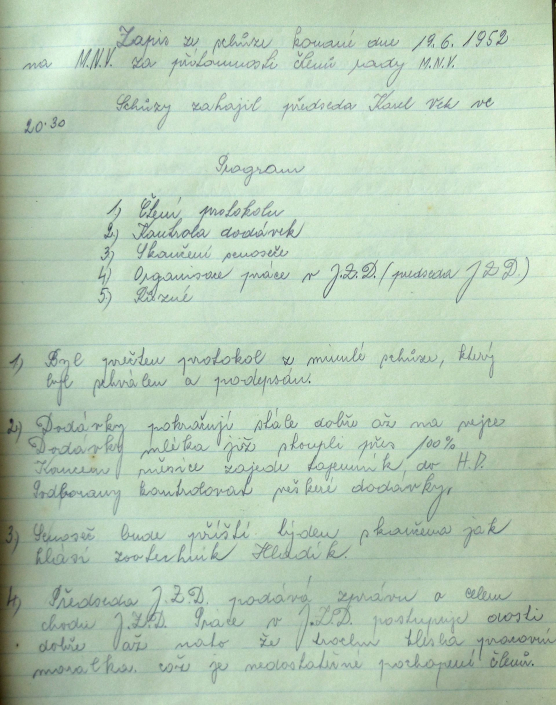 Zapis ze schůze konané dne 19.6.1952
na M.N.V. za přítomnosti členů rady M.N.V.
Schůzy zahajil předseda Karel Vlk ve
20.30
Program
1) Čtení protokolu
2) Kontrola dodávek
3) Skončení senoseče
4) Organisace práce v J.Z.D. (předseda J.Z.D.)
5) Různé
1) Byl přečten protokol z minulé schůze, který
byl schválen a podepsán.
2) Dodávky pokračují stále dobře až na vejce
Dodávky mléka již stouply přes 100%
Koncem měsíce zajede tajemník do H.D.
Podbořany kontrolovat veškeré dodávky,
3) Senoseč bude příští týden skončena jak
hlásí zootechnik Hladík.
4) Předseda J.Z.D. podává zprávu o celém
chodu J.Z.D. Práce v J.Z.D. postupuje dosti
dobře až nato že trochu kleská pracovní
moralka. což je nedostatečné pochopení členů.